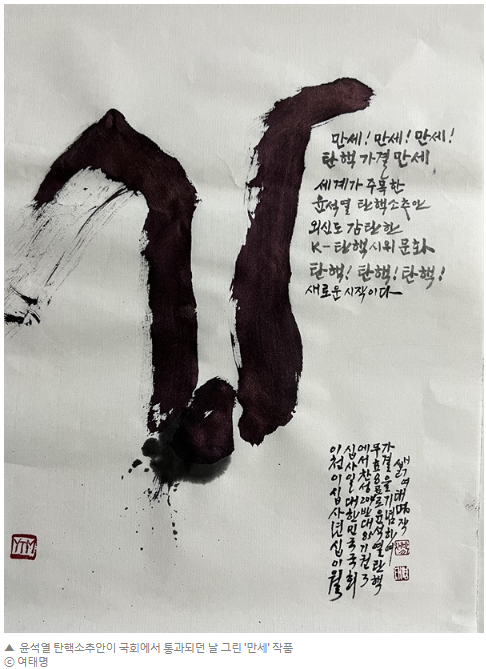 만세! 만세! 만세!
탄핵 가결 만세
세계가 주목한
윤석열 탄핵소추안
외신도 감탄한
K-탄핵시위 문화
탄핵! 탄핵! 탄핵!
새로운 시작이다
이천이십사년십이월
십사일대한민국국회
에서찬성204반대와기권3
무효8표로윤석열탄핵
가결을기념하여
여태명작
YTM
▲ 윤석열 탄핵소추안이 국회에서 통과되던 날 그린 '만세' 작품
ⓒ 여태명